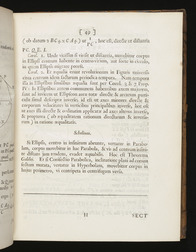 ( ob datum 2 BC q. × CA q. ) ut 1/PC, hoc est, directe ut distantia
PC. Q. E. I.
Corol. 1. Unde vicissim si vis sit ut distantia, movebitur corpus
in Ellipsi centrum habente in centro virium, aut forte in circulo,
in quem Ellipsis migrare potest.
Corol. 2. Et æqualia erunt revolutionum in Figuris universis
circa centrum idem factarum periodica tempora. Nam tempora
illa in Ellipsibus similibus æqualia sunt per Corol. 3. & 7 Prop.
IV: In Ellipsibus autem communem habentibus axem majorem,
sunt ad invicem ut Ellipseon areæ totæ directe & arearum particulæ
simul descriptæ inverse; id est ut axes minores directe &
corporum velocitates in verticibus principalibus inverse, hoc est
ut axes illi directe & ordinatim applicatæ ad axes alteros inverse,
& propterea (ob æqualitatem rationum directarum & inversarum)
in ratione æqualitatis.
Scholium.
Si Ellipsis, centro in infinitum abeunte, vertatur in Parabolam,
corpus movebitur in hac Parabola, & vis ad centrum infinite
distans jam tendens, evadet æquabilis. Hoc est Theorema
Galilei. Et si Conisectio Parabolica, inclinatione plani ad conum
sectum mutata, vertatur in Hyperbolam, movebitur corpus in
hujus perimetro, vi centripeta in centrifugam versa.
H SECT